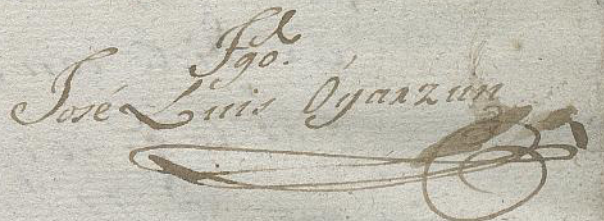 Tgo.
José Luis Oyarzun